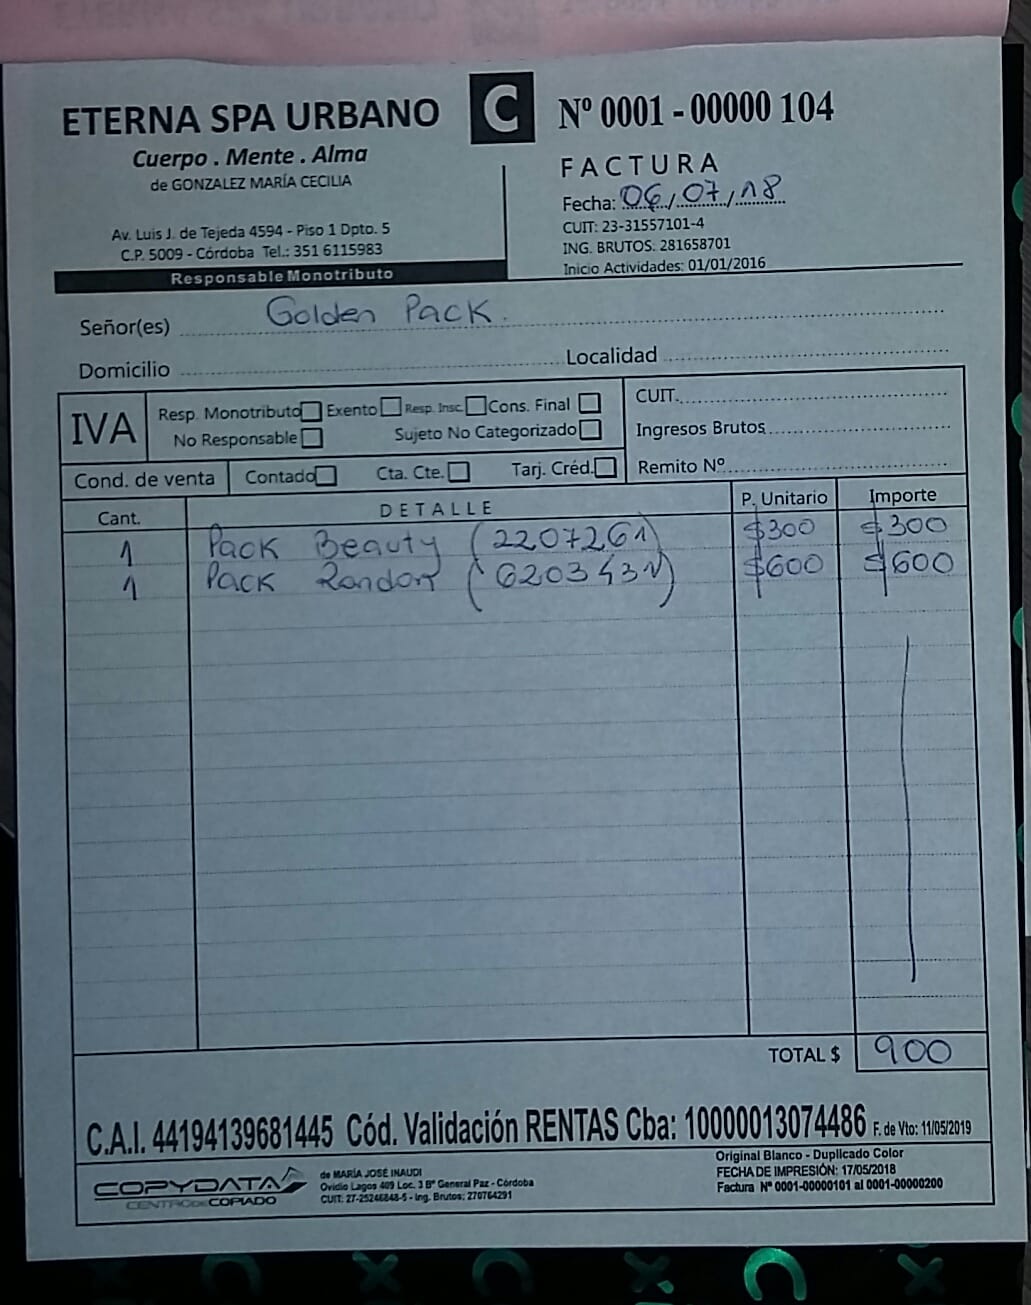 ETERNA SPA URBANO
Cuerpo . Mente . Alma
de GONZALEZ MARÍA CECILIA
Av. Luis J. de Tejeda 4594 - Piso 1 Dpto. 5
C.P. 5009 - Córdoba Tel.: 351 6115983
Responsable Monotributo
C
Nº 0001 - 00000 104
FACTURA
Fecha: 06/07/18
CUIT: 23-31557101-4
ING. BRUTOS: 281658701
Inicio Actividades: 01/01/2016
Señor(es) Golden Pack
Domicilio Localidad
IVA
Resp. Monotributo Exento Resp. Insc. Cons. Final
No Responsable Sujeto No Categorizado
CUIT
Ingresos Brutos
Cond. de venta Contado Cta. Cte. Tarj. Créd.
Remito Nº
Cant. DETALLE P. Unitario Importe
1 Pack Beauty (2207261) $300 $300
1 Pack Random $600 $600
TOTAL $ 900
C.A.I. 44194139681445 Cód. Validación RENTAS Cba: 10000013074486 F. de Vto: 11/05/2019
COPYDATA
CENTRO DE COPIADO
de MARÍA JOSÉ INAUDI
Ovidio Lagos 409 Loc. 3 Bº General Paz - Córdoba
CUIT: 27-25246848-5 - Ing. Brutos: 270764291
Original Blanco - Duplicado Color
FECHA DE IMPRESIÓN: 17/05/2018
Factura Nº 0001-00000101 al 0001-00000200